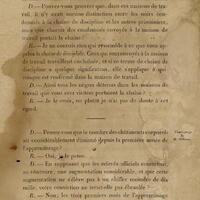 D.—Pouvez-vous prouver que, dans ces maisons de tra-
vail, il n'y eut aucune distinction entre les noirs con-
damnés à la chaîne de discipline et les autres prisonniers,
que chacun des condamnés envoyés à la maison de
travail portait la chaîne?
R.—Je ne connais rien qui ressemble à ce que vous ap-
pelez la chaîne de discipline. Ceux qui sont envoyés à la maison
de travail travaillent enchaînés, et si ce terme de chaîne de
discipline a quelque signification, elle s'applique à qui-
conque est renfermé dans la maison de travail.
D.—Ainsi tous les nègres détenus dans les maisons de
travail que vous avez visitées portaient la chaîne?
R.—Je le crois, ou plutôt je n'ai pas de doute à cet
égard.
D.—Pensez-vous que le nombre des châtiments corporels
ait considérablement diminué depuis la première année de
l'apprentissage?
R.—Oui, je le pense.
D.—En supposant que les relevés officiels constatent,
au contraire, une augmentation considérable, et que cette
augmentation ne s'élève pas à un chiffre moindre de dix
mille, votre conviction ne serait-elle pas ébranlée?
R.—Non; les trois premiers mois de l'apprentissage